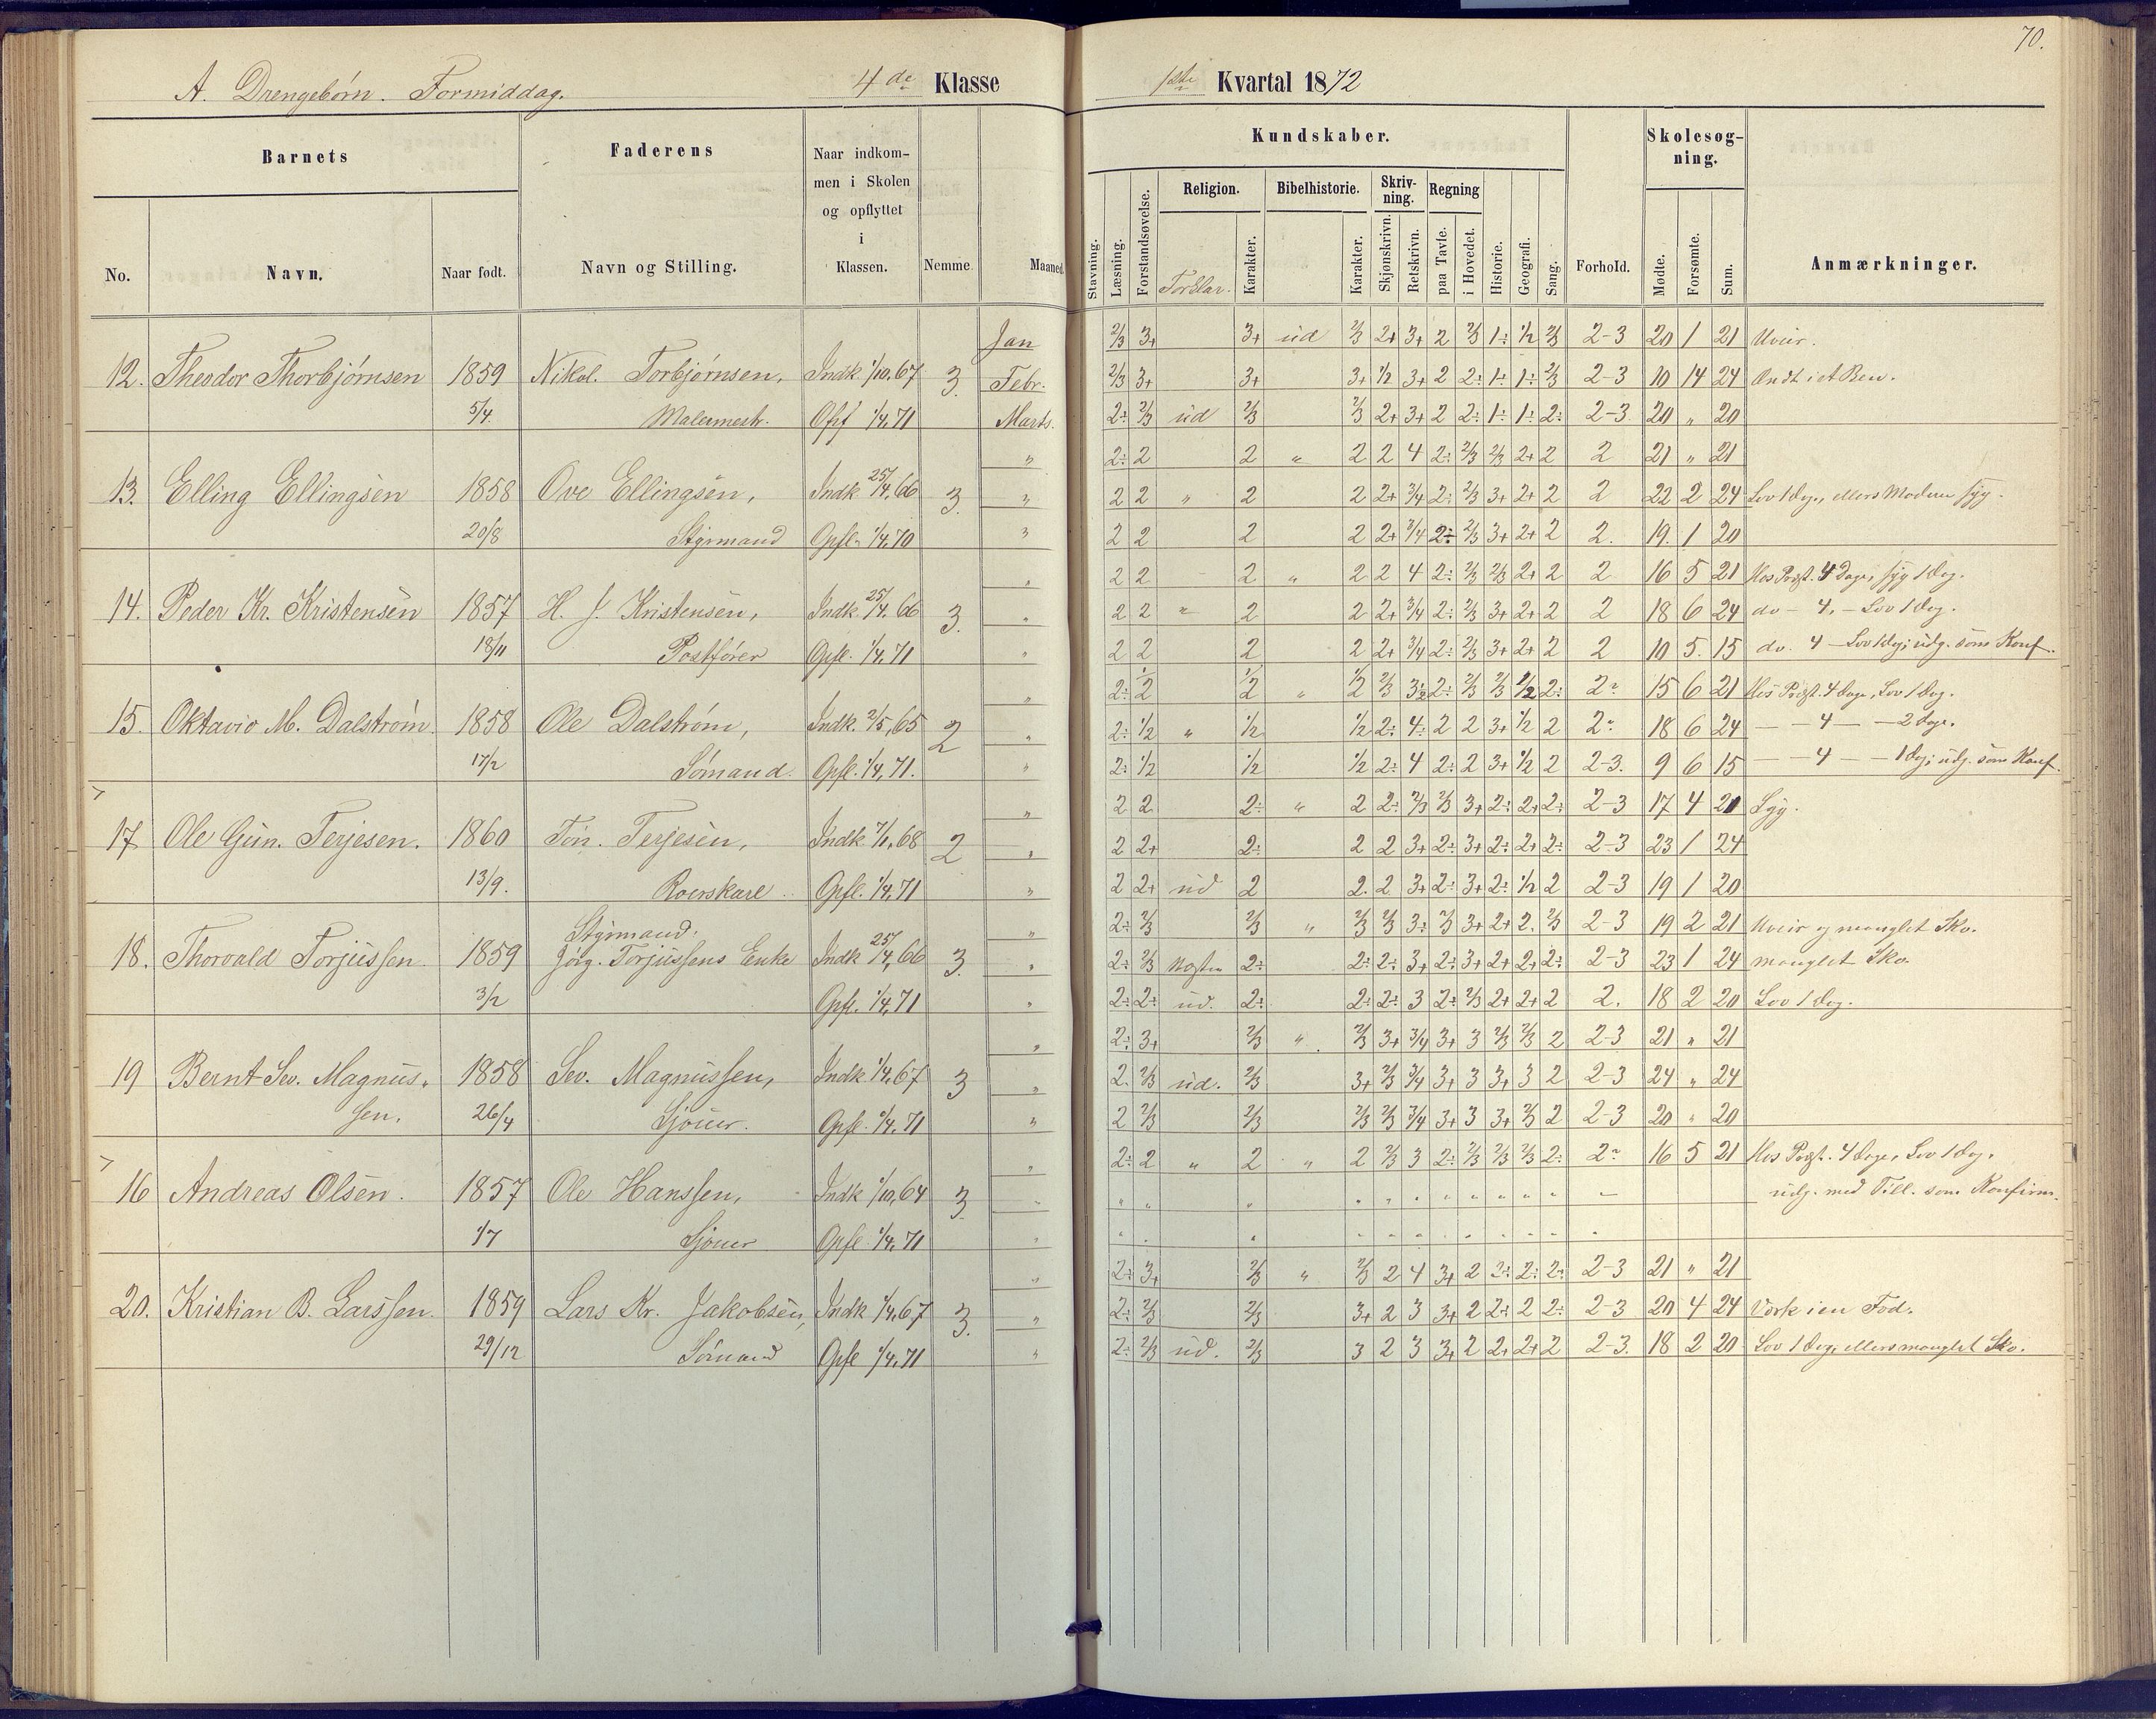 70.
A. Drengebørn. Formiddag. 4de Klasse 1ste Kvartal 1872
Barnets Faderens Naar indkom- Kundskaber. Skolesøg-
men i Skolen ning.
og opflyttet Religion. Bibelhistorie. Skriv- Regning
i ning.
No. Navn. Naar født. Navn og Stilling. Klassen. Nemme Maaned Stavning. Læsning. Forstandsøvelse. Forklar. Karakter. Karakter. Skjønskrivn. Retskrivn. paa Tavle. i Hovedet. Historie. Geografi. Sang. Forhold. Mødte. Forsømte. Sum. Anmærkninger.
Jan 2/3 3+ 3+ ud 2/3 2+ 3+ 2 2/3 1÷ 1/2 2/3 2-3 20 1 21 Uveir.
12. Theodor Thorbjørnsen 1859 Nikol. Torbjørnsen, Indk 1/10,67 3. Febr. 2/3 3+ 3+ 3+ 1/2 3+ 2 2÷ 1÷ 1÷ 2/3 2-3 10 14 24 Ondt i et Ben.
5/4. Malermestr. Opf 1/4,71 Marts. 2÷ 2/3 ud 2/3 2/3 2+ 3+ 2 2÷ 1÷ 1÷ 2÷ 2-3 20 " 20
" 2÷ 2 2 " 2 2 4 2÷ 2/3 2/3 2+ 2 2 21 " 21
13. Elling Ellingsen 1858 Ove Ellingsen, Indk 25/4,66 3. " 2 2 " 2 2 2+ 3/4 2÷ 2/3 3+ 2+ 2 2 22 2 24 Lov 1 Dag, ellers Moderen syg.
20/8 Styrmand Opfl. 1/4,70 " 2 2 2 2 2+ 3/4 2÷ 2/3 3+ 2+ 2 2. 19. 1 20
" 2 2 2 " 2 2 4 2÷ 2/3 2/3 2+ 2 2 16 5 21 Hos Præst. 4 Dage, syg 1 Dag.
14. Peder Kr. Kristensen 1857 H. J. Kristensen, Indk. 25/4,66 3. " 2 2 " 2 2 2+ 3/4 2÷ 2/3 3+ 2+ 2 2 18 6 24 do - 4, - Lov 1 Dag.
18/11 Postfører Opfl. 1/4,71 " 2 2 2 2 2+ 3/4 2÷ 2/3 3+ 2+ 2 2 10 5. 15 do. 4 - Lov 1 Dag; udg. som Konf.
" 2÷ 1/2 1/2 " 1/2 2/3 3 1/2 2÷ 2/3 2/3 1/2 2÷ 2" 15 6 21 Hos Præst. 4 Dage, Lov 1 Dag.
15. Oktavio M. Dalstrøm. 1858 Ole Dalstrøm, Indk. 2/5,65 2 " 2÷ 1/2 " 1/2 1/2 2÷ 4÷ 2 2 3+ 1/2 2 2" 18 6 24 - - 4 - - 2 Dage.
17/2 Sømand. Opfl. 1/4,71. " 2÷ 1/2 1/2 1/2 2÷ 4 2÷ 2 3+ 1/2 2 2-3. 9 6 15 - - 4 - - 1 Dag; udg. som Konf.
" 2 2 2÷ " 2 2÷ 2/3 2/3 3+ 2÷ 2+ 2÷ 2-3 17 4 21 Syg.
17 Ole Gun. Terjesen. 1860 Tøn. Terjesen, Indk 7/1,68 2 " 2 2+ 2÷ 2 2 3+ 2÷ 3+ 2÷ 2+ 2÷ 2-3 23 1 24
13/9. Roerskarl Opfl. 1/4,71 " 2 2+ ud 2 2. 2 3+ 2÷ 3+ 2÷ 1/2 2 2-3 19 1 20
Styrmand. " 2÷ 2/3 2/3 " 2/3 2/3 3÷ 2/3 3+ 2+ 2. 2/3 2-3 19 2 21 Uveir og manglet Sko.
18. Thorvald Torjussen 1859 Jørg. Torjussens Enke Indk 25/4,66 3. " 2÷ 2/3 Næsten 2÷ 2÷ 2÷ 3+ 2÷ 3+ 2+ 2+ 2÷ 2-3 23 1 24 manglet Sko.
3/2 Opfl. 1/4,71 " 2÷ 2÷ ud. 2÷ 2÷ 2÷ 3 2÷ 2/3 2+ 2+ 2 2. 18 2 20 Lov 1 Dag.
" 2÷ 3+ 2/3 " 2/3 3+ 3/4 3+ 3 2/3 2/3 2 2-3 21 " 21
19 Bernt Sev. Magnus- 1858 Sev. Magnussen, Indk 1/4,67 3 " 2. 2/3 ud. 2/3 3+ 2/3 3/4 3+ 3 3+ 3 2 2-3 24 " 24
sen. 26/4 Sjouer. Opfl. 1/4,71 " 2 2/3 2/3 2/3 2/3 3/4 3+ 3 3+ 2/3 2 2-3 20 " 20
" 2÷ 2 " 2 " 2 2/3 3 2÷ 2/3 2/3 2/3 2÷ 2" 16 5 21 Hos Præst. 4 Dage, Lov 1 Dag.
16 Andreas Olsen. 1857 Ole Hanssen, Indk 1/10,64 3. " " " " " " " " " " " " " - udg. med Till. som Konfirm.
1/7 Sjouer Opfl 1/4,71 " " " " " " " " " " " " " "
" 2÷ 3+ 2/3 " 2/3 2 4 3+ 2 2÷ 2÷ 2÷ 2-3 21 " 21
20. Kristian B. Larssen. 1859 Lars Kr. Jakobsen, Indk 1/4,67 3. " 2÷ 2/3 2/3 3+ 2 3 3+ 2 2÷ 2 2÷ 2-3 20 4 24 Værk i en Fod.
29/12 Sømand Opfl 1/4,71 " 2÷ 2/3 ud. 2/3 3 2 3 3+ 2 2+ 2+ 2 2-3. 18 2 20 Lov 1 Dag, ellers manglet Sko.